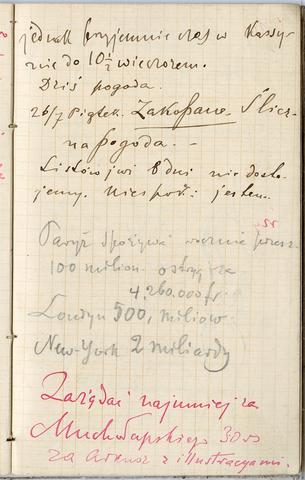 jednak przyjemnie czas w Kassy-
nie do 10½ wieczorem.
Dziś pogoda.
26/7 Piątek. Zakopane. Ślicz-
na pogoda. –
Listów już 8 dni nie dosta-
jemy. Niespok. jestem.
Paryż spożywa rocznie przesz.
100 milion. ostryg za
4,260.000 fr.
Londyn 500, milion.
New-York 2 miliardy
Zażądać najmniej za
Muchołapskiego 30
za arkusz z illustracyami.